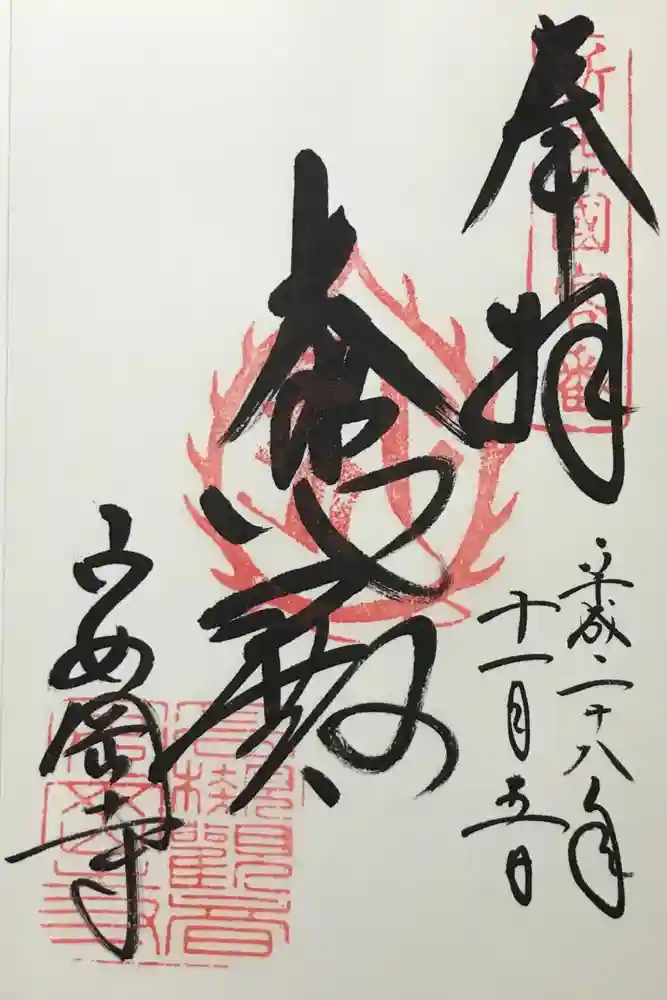 新西國客番
奉拝
平成二十八年
十一月五日
大悲殿
安岡寺